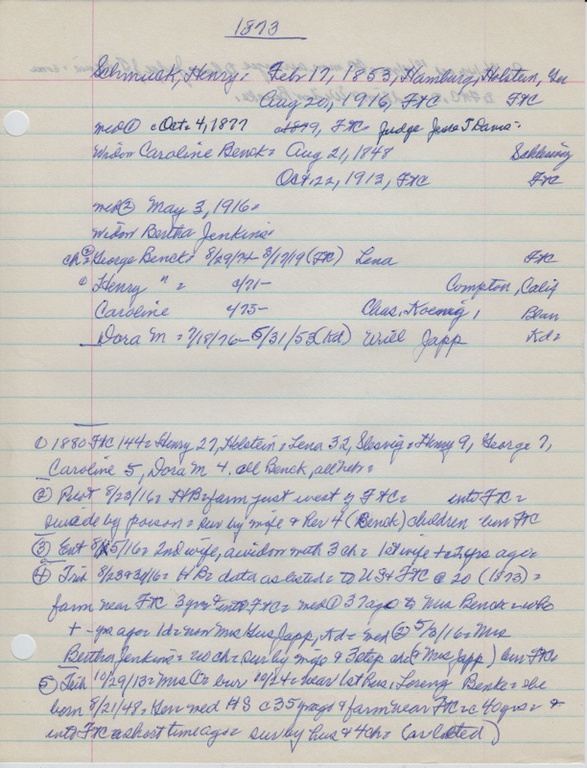 1873
Schmuck, Henry: Feb 17, 1853, Hamburg, Holstein, Ger
Aug 20, 1916, FtC FtC
med① c Oct 4, 1877 c1879, FtC Judge Jesse T Davis:
widow Caroline Benck: Aug 21, 1848 Schleswig
Oct. 22, 1913, FtC FtC
med② May 3, 1916=
widow Bertha Jenkins:
ch② George Benck: 8/29/74 - 8/17/19 (FtC) Lena FtC
① Henry " = c/71- Compton, Calif
Caroline c/75- Chas. Koenig, Blair
Dora M = 7/18/76 - 5/31/53 (Kd) Uriel Japp Kd=
① 1880 FtC 144= Henry 27, Holstein: Lena 32, Slesvig: Henry 9, George 7,
Caroline 5, Dora M 4. all Benck, all Neb=
② Pilot 8/23/16= HB= farm just west of FtC= into FtC=
suicide by poison = sur by wife & her 4 (Benck) children bur FtC
③ Ent 8/25/16= 2nd wife, a widow with 3 ch = 1st wife + 2 yrs ago=
④ Trib 8/23 & 24/16 = HB= data as listed = to US & FtC @ 20 (1873) =
farm near FtC 3 yrs & into FtC= med① 37 ago to Mrs Benck = who
+ - yrs ago = 1d= now Mrs Gus Japp, Kd= med② 5/3/16= Mrs
Bertha Jenkins = no ch= sur by wife & 3 step ch (& Mrs Japp) bur FtC
⑤ Trib 10/29/13= Mrs C= bur 10/24= near 1st hus, Lorenz Benke = she
born 8/21/48= Ger med HS c35 yrs ago & farm near FtC= c 40 yrs = &
into FtC a short time ago = sur by hus & 4 ch= (as listed)